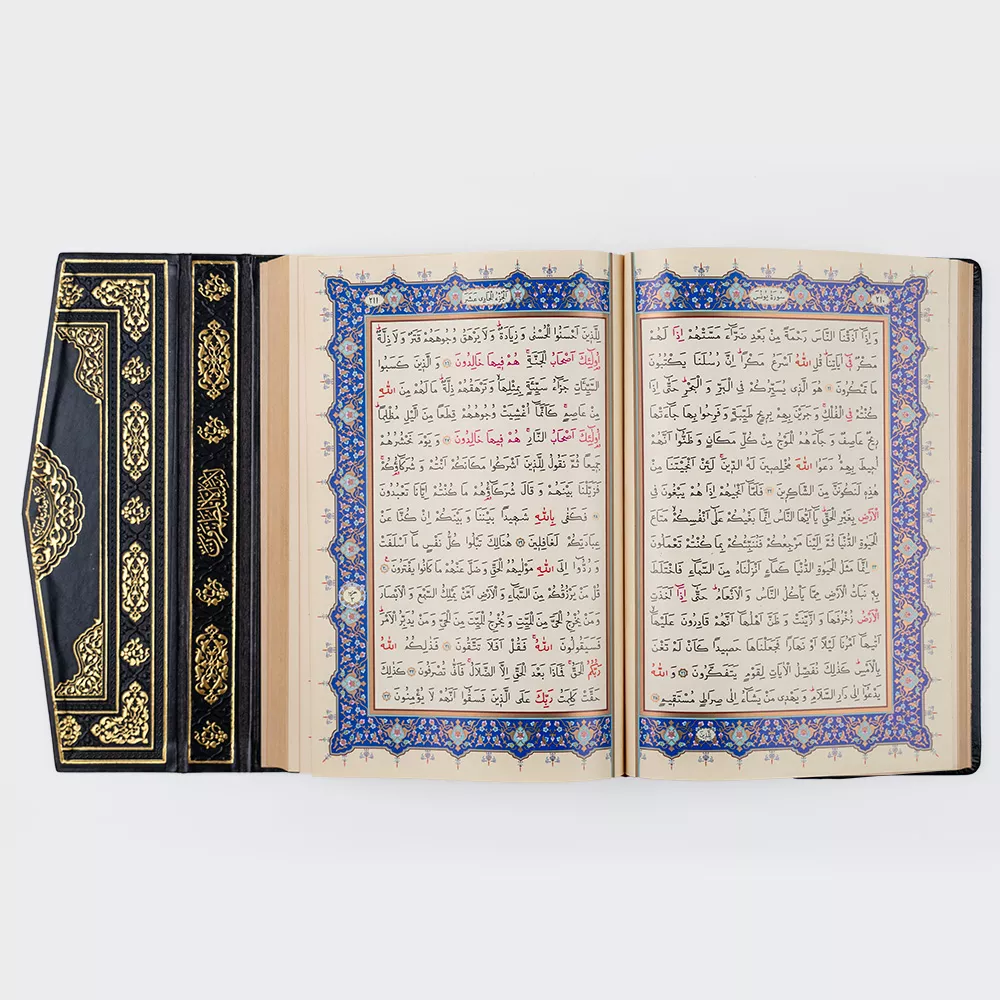 سُورَةُ يُونُسَ ٢١٠
وَاِذَٓا اَذَقْنَا النَّاسَ رَحْمَةً مِنْ بَعْدِ ضَرَّٓاءَ مَسَّتْهُمْ اِذَا لَهُمْ
مَكْرٌ فٓى اٰيَاتِنَا قُلِ اللّٰهُ اَسْرَعُ مَكْرًا اِنَّ رُسُلَنَا يَكْتُبُونَ
مَا تَمْكُرُونَ ٢١ هُوَ الَّذٖى يُسَيِّرُكُمْ فِى الْبَرِّ وَالْبَحْرِ حَتّٰٓى اِذَا
كُنْتُمْ فِى الْفُلْكِ وَجَرَيْنَ بِهِمْ بِرٖيحٍ طَيِّبَةٍ وَفَرِحُوا بِهَا جَٓاءَتْهَا
رٖيحٌ عَاصِفٌ وَجَٓاءَهُمُ الْمَوْجُ مِنْ كُلِّ مَكَانٍ وَظَنُّٓوا اَنَّهُمْ
اُحٖيطَ بِهِمْ دَعَوُا اللّٰهَ مُخْلِصٖينَ لَهُ الدّٖينَ لَئِنْ اَنْجَيْتَنَا مِنْ
هٰذِهٖ لَنَكُونَنَّ مِنَ الشَّاكِرٖينَ ٢٢ فَلَمَّٓا اَنْجٰيهُمْ اِذَا هُمْ يَبْغُونَ فِى
الْاَرْضِ بِغَيْرِ الْحَقِّ يَٓا اَيُّهَا النَّاسُ اِنَّمَا بَغْيُكُمْ عَلٰٓى اَنْفُسِكُمْ مَتَاعَ
الْحَيٰوةِ الدُّنْيَا ثُمَّ اِلَيْنَا مَرْجِعُكُمْ فَنُنَبِّئُكُمْ بِمَا كُنْتُمْ تَعْمَلُونَ
٢٣ اِنَّمَا مَثَلُ الْحَيٰوةِ الدُّنْيَا كَمَٓاءٍ اَنْزَلْنَاهُ مِنَ السَّمَٓاءِ فَاخْتَلَطَ
بِهٖ نَبَاتُ الْاَرْضِ مِمَّا يَاْكُلُ النَّاسُ وَالْاَنْعَامُ حَتّٰٓى اِذَٓا اَخَذَتِ
الْاَرْضُ زُخْرُفَهَا وَازَّيَّنَتْ وَظَنَّ اَهْلُهَٓا اَنَّهُمْ قَادِرُونَ عَلَيْهَٓا
اَتٰيهَٓا اَمْرُنَا لَيْلًا اَوْ نَهَارًا فَجَعَلْنَاهَا حَصٖيدًا كَاَنْ لَمْ تَغْنَ
بِالْاَمْسِ كَذٰلِكَ نُفَصِّلُ الْاٰيَاتِ لِقَوْمٍ يَتَفَكَّرُونَ ٢٤ وَاللّٰهُ
يَدْعُٓوا اِلٰى دَارِ السَّلَامِ وَيَهْدٖى مَنْ يَشَٓاءُ اِلٰى صِرَاطٍ مُسْتَقٖيمٍ ٢٥
اَلْجُزْءُ الْحَادٖى عَشَرَ ٢١١
لِلَّذٖينَ اَحْسَنُوا الْحُسْنٰى وَزِيَادَةٌ وَلَا يَرْهَقُ وُجُوهَهُمْ قَتَرٌ وَلَا ذِلَّةٌ
اُو۬لٰٓئِكَ اَصْحَابُ الْجَنَّةِ هُمْ فٖيهَا خَالِدُونَ ٢٦ وَالَّذٖينَ كَسَبُوا
السَّيِّاٰتِ جَزَٓاءُ سَيِّئَةٍ بِمِثْلِهَا وَتَرْهَقُهُمْ ذِلَّةٌ مَا لَهُمْ مِنَ اللّٰهِ
مِنْ عَاصِمٍ كَاَنَّمَٓا اُغْشِيَتْ وُجُوهُهُمْ قِطَعًا مِنَ الَّيْلِ مُظْلِمًا
اُو۬لٰٓئِكَ اَصْحَابُ النَّارِ هُمْ فٖيهَا خَالِدُونَ ٢٧ وَيَوْمَ نَحْشُرُهُمْ
جَمٖيعًا ثُمَّ نَقُولُ لِلَّذٖينَ اَشْرَكُوا مَكَانَكُمْ اَنْتُمْ وَشُرَكَٓاؤُ۬كُمْ
فَزَيَّلْنَا بَيْنَهُمْ وَقَالَ شُرَكَٓاؤُ۬هُمْ مَا كُنْتُمْ اِيَّانَا تَعْبُدُونَ
٢٨ فَكَفٰى بِاللّٰهِ شَهٖيدًا بَيْنَنَا وَبَيْنَكُمْ اِنْ كُنَّا عَنْ
عِبَادَتِكُمْ لَغَافِلٖينَ ٢٩ هُنَالِكَ تَبْلُوا كُلُّ نَفْسٍ مَٓا اَسْلَفَتْ
وَرُدُّٓوا اِلَى اللّٰهِ مَوْلٰيهُمُ الْحَقِّ وَضَلَّ عَنْهُمْ مَا كَانُوا يَفْتَرُونَ ٣٠
قُلْ مَنْ يَرْزُقُكُمْ مِنَ السَّمَٓاءِ وَالْاَرْضِ اَمَّنْ يَمْلِكُ السَّمْعَ وَالْاَبْصَارَ
وَمَنْ يُخْرِجُ الْحَىَّ مِنَ الْمَيِّتِ وَيُخْرِجُ الْمَيِّتَ مِنَ الْحَىِّ وَمَنْ يُدَبِّرُ الْاَمْرَ
فَسَيَقُولُونَ اللّٰهُ فَقُلْ اَفَلَا تَتَّقُونَ ٣١ فَذٰلِكُمُ اللّٰهُ
رَبُّكُمُ الْحَقُّ فَمَاذَا بَعْدَ الْحَقِّ اِلَّا الضَّلَالُ فَاَنّٰى تُصْرَفُونَ ٣٢ كَذٰلِكَ
حَقَّتْ كَلِمَتُ رَبِّكَ عَلَى الَّذٖينَ فَسَقُٓوا اَنَّهُمْ لَا يُؤْمِنُونَ ٣٣